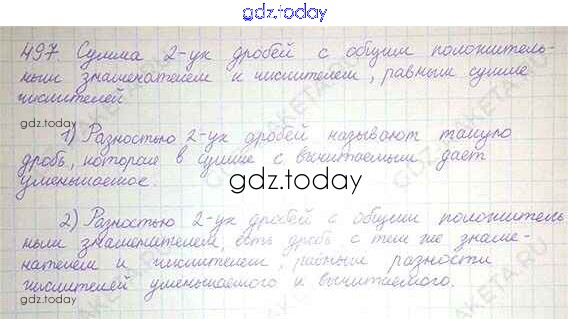 gdz.today
497. Сумма 2-ух дробей с общим положитель-
ным знаменателем и числителем, равным сумме
числителей
gdz.today
1) Разностью 2-ух дробей называют такую
дробь, которая в сумме с вычитаемым дает
уменьшаемое.
gdz.today
2) Разностью 2-ух дробей с общим положитель
ным знаменателем, есть дробь с тем же знаме-
нателем и числителем, равным разности
числителей уменьшаемого и вычитаемого.
gdz.today